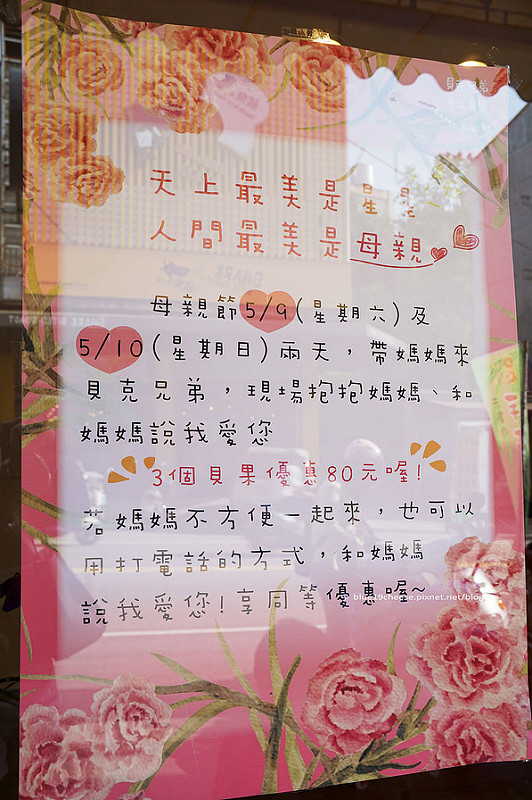 天上最美是星星
人間最美是母親
母親節5/9(星期六)及
5/10(星期日)兩天，帶媽媽來
貝克兄弟，現場抱抱媽媽、和
媽媽說我愛您
3個貝果優惠80元喔!
若媽媽不方便一起來，也可以
用打電話的方式，和媽媽
說我愛您!享同等優惠喔~